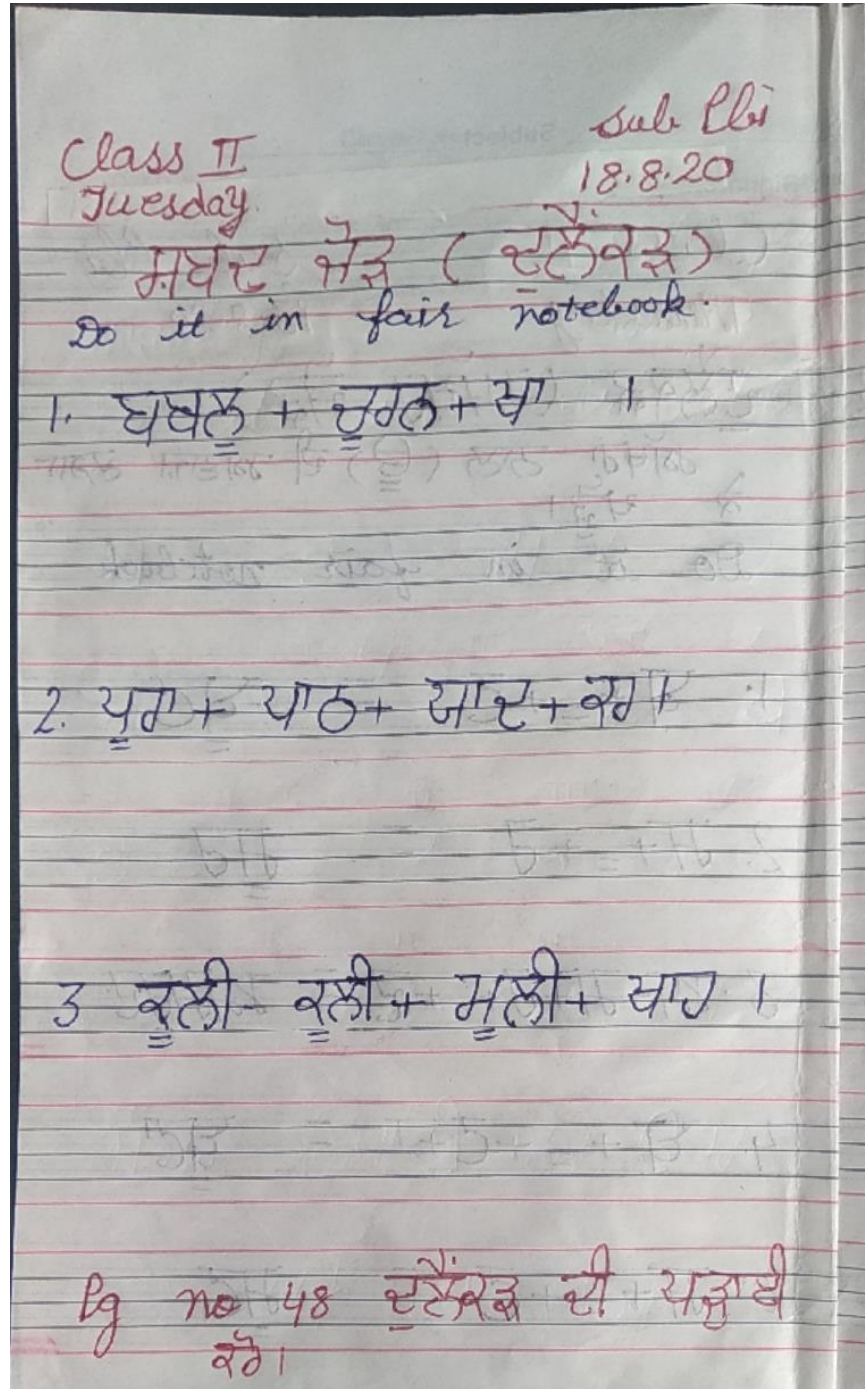 Class II
Sub Pbi
Tuesday.
18.8.20
ਸ਼ਬਦ ਜੋੜ ( ਦੁਲੈਂਕੜ)
Do it in fair notebook.
1. ਬਬਲੂ + ਚੂਰਨ + ਖਾ ।
2. ਪੂਰਾ + ਪਾਠ + ਯਾਦ + ਕਰ ।
3 ਕੂਲੀ - ਕੂਲੀ + ਮੂਲੀ + ਖਾਹ ।
Pg no 48 ਦੁਲੈਂਕੜ ਦੀ ਪੜ੍ਹਾਈ
ਕਰੋ।